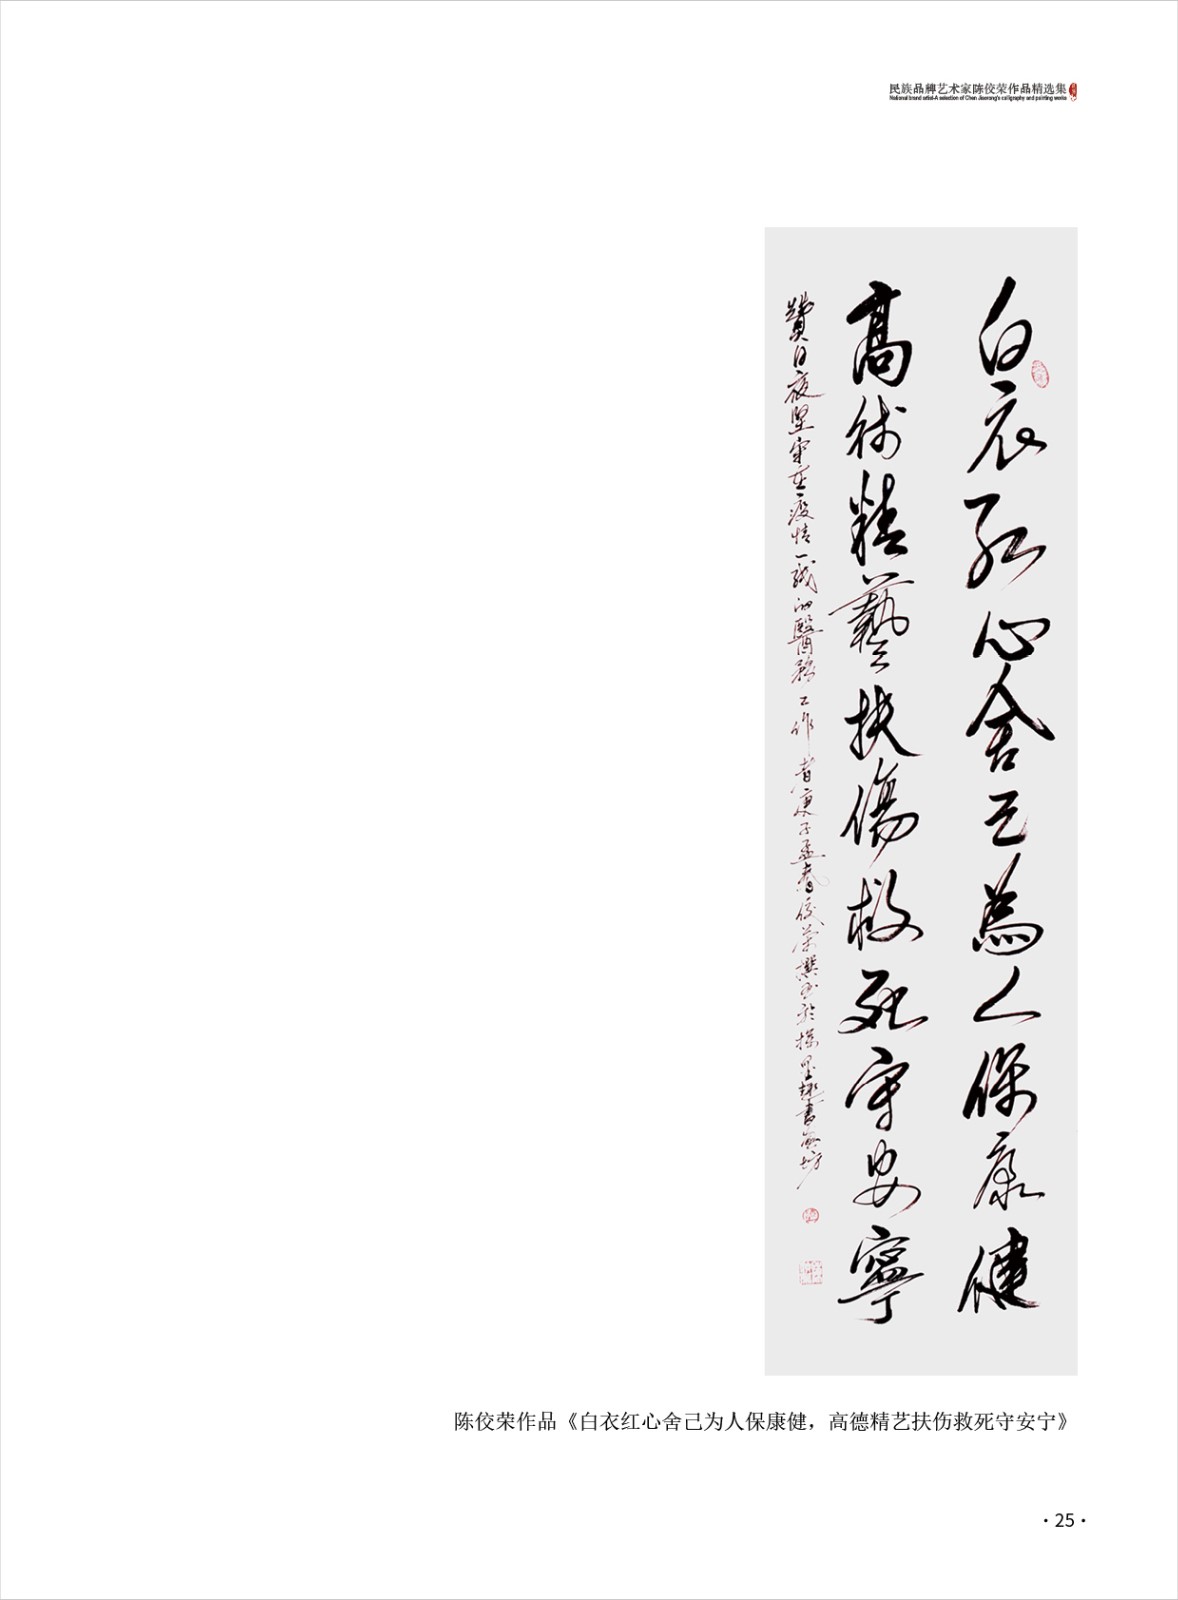 民族品牌艺术家陈佼荣作品精选集
National brand artist-A selection of Chen Jiaorong's calligraphy and painting works
白衣红心舍己為人保康健
高術精藝扶傷救死守安寧
贊日夜坚守在疫情一线的醫務工作者庚子孟春佼荣撰书於墨趣書坊
陈佼荣作品《白衣红心舍己为人保康健，高德精艺扶伤救死守安宁》
·25·